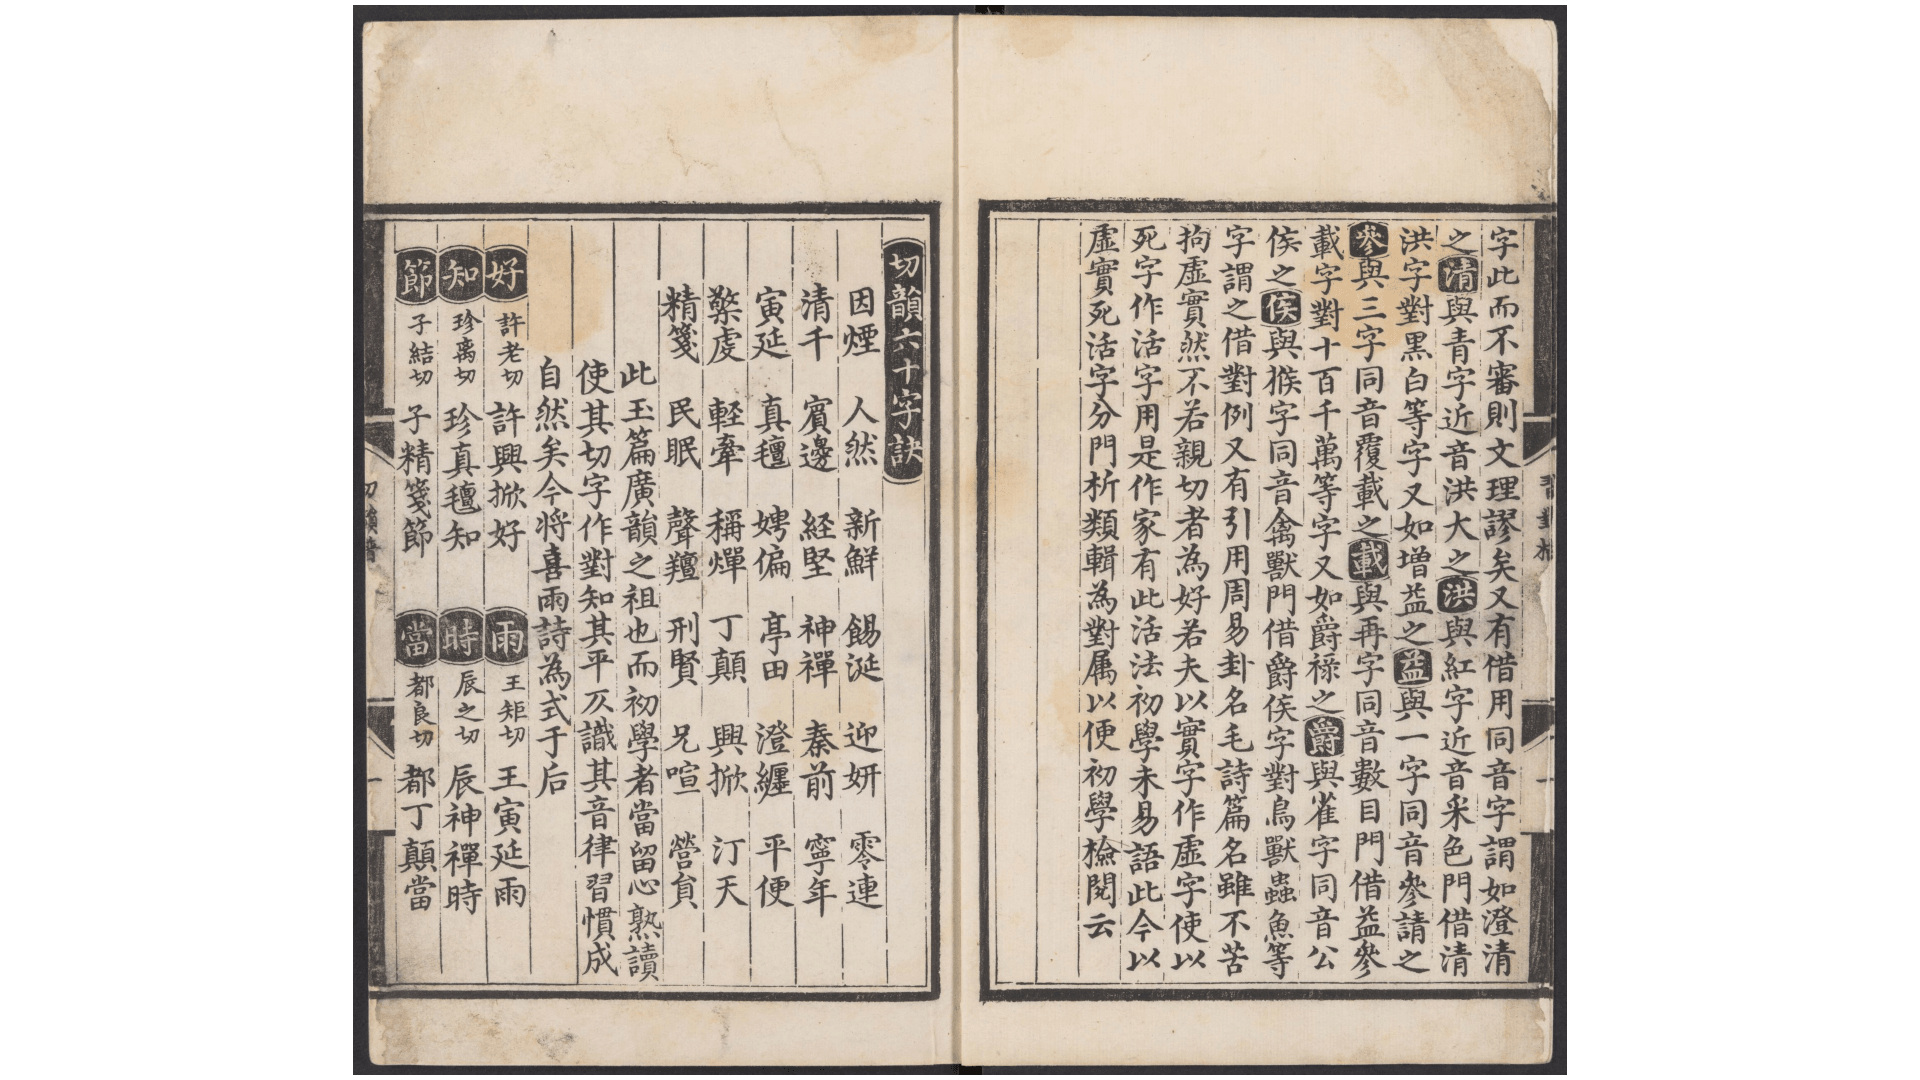 字此而不審則文理謬矣又有借用同音字謂如澄清
之清與青字近音洪大之洪與紅字近音采色門借清
洪字對黑白等字又如增益之益與一字同音參請之
參與三字同音覆載之載與再字同音數目門借益參
載字對十百千萬等字又如爵祿之爵與雀字同音公
侯之侯與猴字同音禽獸門借爵侯字對鳥獸蟲魚等
字謂之借對例又有引用周易卦名毛詩篇名雖不苦
拘虛實然不若親切者為好若夫以實字作虛字使以
死字作活字用是作家有此活法初學未易語此今以
虛實死活字分門析類輯為對属以便初學檢閱云
切韻六十字訣
因煙 人然 新鮮 餳涎 迎妍 零連
清千 賓邊 経堅 神禪 秦前 寧年
寅延 真氊 娉偏 亭田 澄纒 平便
檠虔 輕牽 稱燀 丁顛 興掀 汀天
精箋 民眠 聲羶 刑賢 兄喧 營貟
此玉篇廣韻之祖也而初學者當留心熟讀
使其切字作對知其平仄識其音律習慣成
自然矣今将喜雨詩為式于后
好 許老切 許興掀好 雨 王矩切 王寅延雨
知 珍离切 珍真氊知 時 辰之切 辰神禪時
節 子結切 子精箋節 當 都良切 都丁顛當